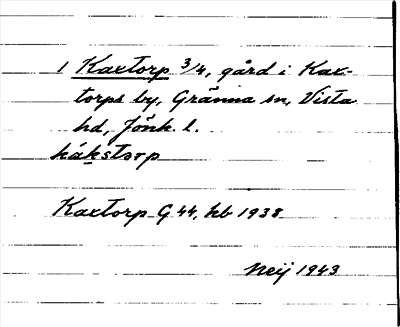 1 Kaxtorp 3/4, gård i Kax-
torps by, Gränna sn, Vista
hd, Jönk. l.
kákstorp
Kaxtorp G 44, kb 1938
Neij 1943